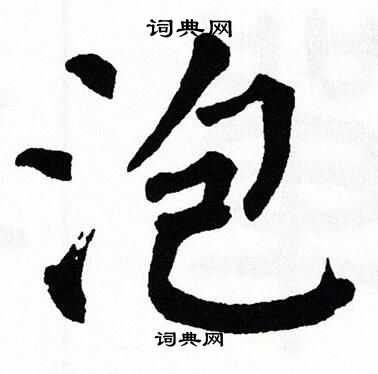 词典网
泡
词典网